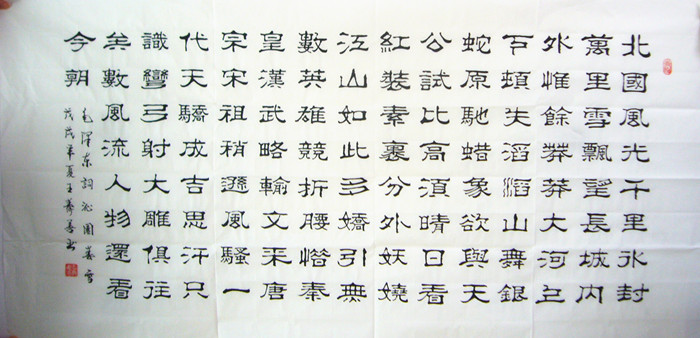 北國風光千里氷封
萬里雪飄望長城内
外惟餘莽莽大河上
下頓失滔滔山舞銀
蛇原馳蜡象欲與天
公試比高須晴日看
紅裝素裹分外妖嬈
江山如此多嬌引無
數英雄競折腰惜秦
皇漢武略輸文采唐
宗宋祖稍遜風騷一
代天驕成吉思汗只
識彎弓射大雕俱往
矣數風流人物還看
今朝
毛澤東詞沁園春雪
戊戌年夏王